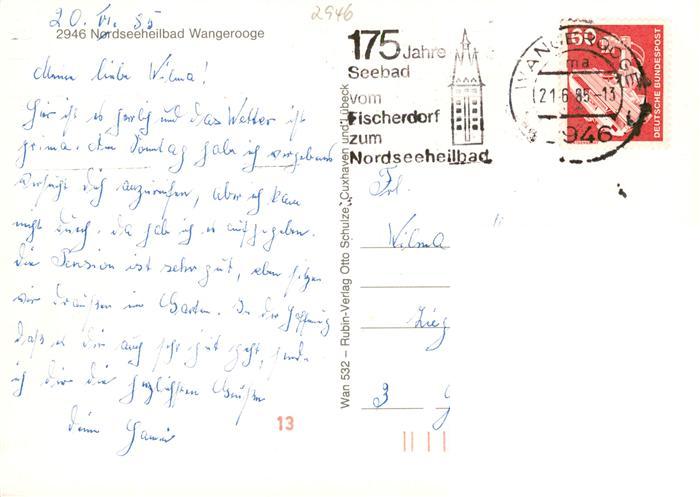 20. VI. 85
2946
2946 Nordseeheilbad Wangerooge
Meine liebe Wilma!
Hier ist es herrlich und das Wetter ist
prima. Am Sonntag hab ich vergebens
versucht Dich anzurufen, aber ich kam
nicht durch, da hab ich es aufgegeben.
Die Pension ist sehr gut, eben sitzen
wir draußen im Garten. In der Hoffnung
daß es Dir auch sehr gut geht, sende
ich Dir die herzlichsten Grüße
Deine
13
Wan 532 – Rubin-Verlag Otto Schulze, Cuxhaven und Lübeck
175 Jahre
Seebad
vom
Fischerdorf
zum
Nordseeheilbad
WANGEROOGE
ma
21.6.85-13
2946
60
DEUTSCHE BUNDESPOST
Frl.
Wilma
Zieg
3